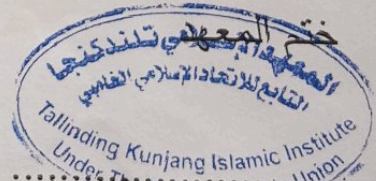 ختم المعهد
المعهد الإسلامي تلندكنجا
التابع للاتحاد الإسلامي الغامبي
Tallinding Kunjang Islamic Institute
Under Union